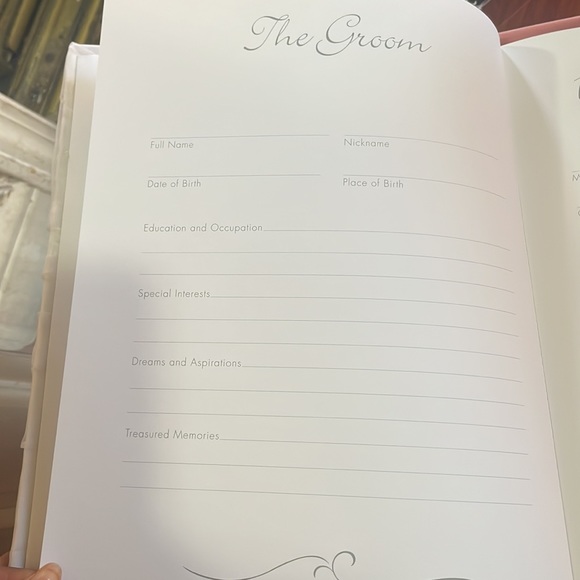 The Groom
Full Name Nickname
Date of Birth Place of Birth
Education and Occupation
Special Interests
Dreams and Aspirations
Treasured Memories